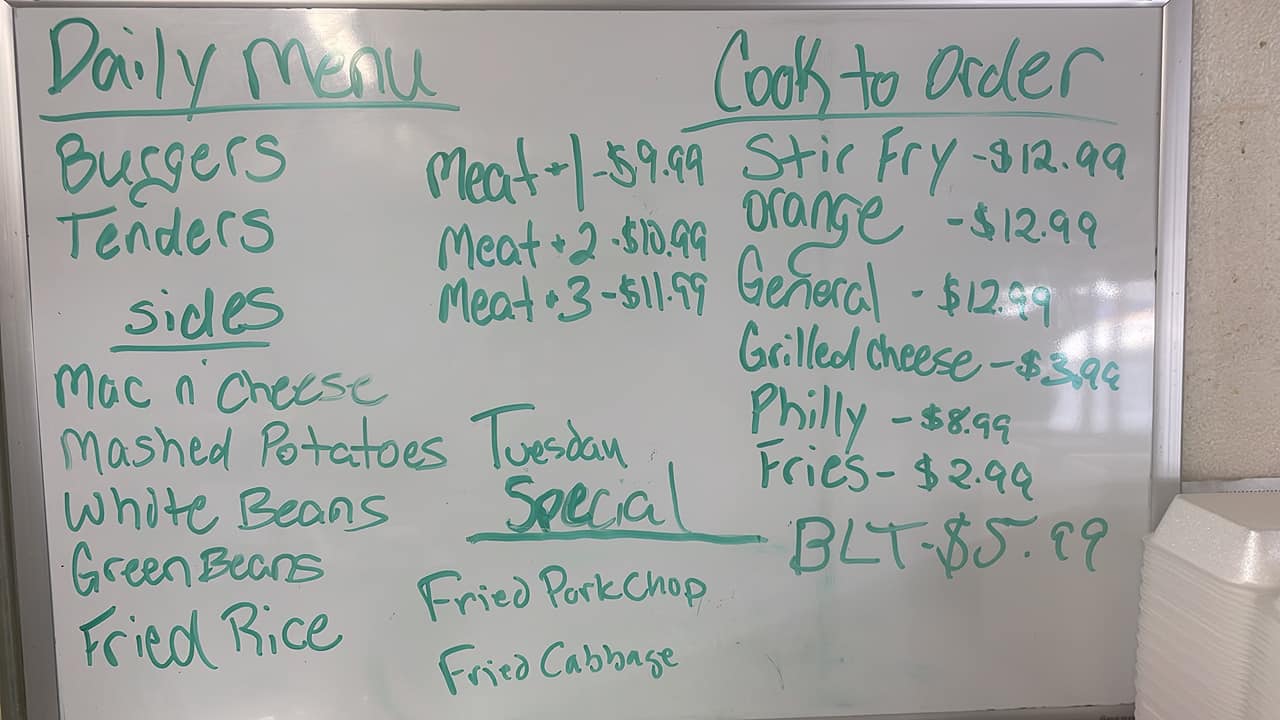 Daily Menu
Burgers
Tenders
sides
Mac n' Cheese
Mashed Potatoes
White Beans
Green Beans
Fried Rice
Meat + 1 - $9.99
Meat + 2 - $10.99
Meat + 3 - $11.99
Tuesday
Special
Fried Pork Chop
Fried Cabbage
Cook to Order
Stir Fry - $12.99
orange - $12.99
General - $12.99
Grilled cheese - $3.99
Philly - $8.99
Fries - $2.99
BLT - $5.99